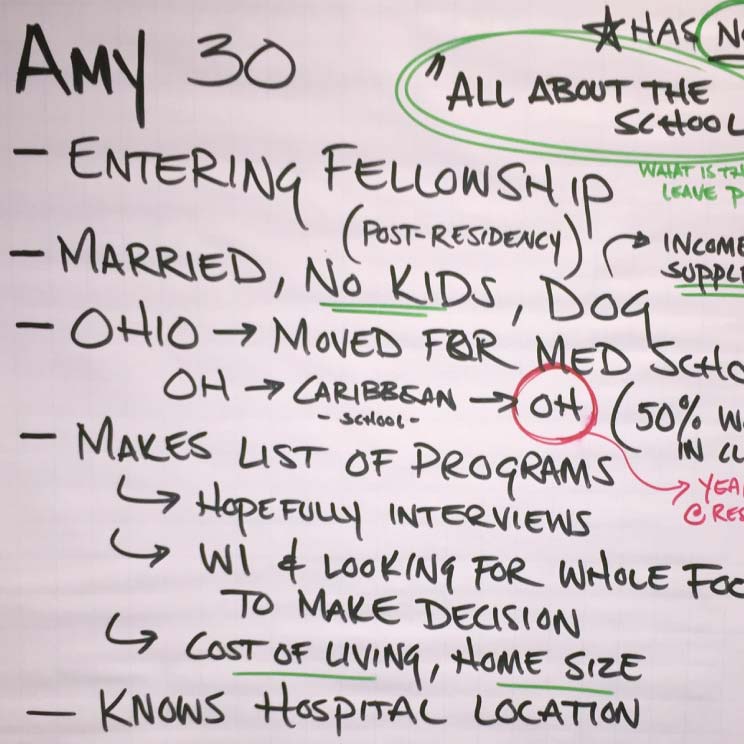 AMY 30
☆ HAS
"ALL ABOUT THE
SCHOOL
- ENTERING FELLOWSHIP
(POST-RESIDENCY)
WHAT IS
LEAVE
- MARRIED, NO KIDS, DOG
→ INCOME
- OHIO → MOVED FOR MED
OH → CARIBBEAN → OH (50%
- SCHOOL -
IN
- MAKES LIST OF PROGRAMS
↳ HOPEFULLY INTERVIEWS
@
↳ WI & LOOKING FOR WHOLE
TO MAKE DECISION
↳ COST OF LIVING, HOME SIZE
- KNOWS HOSPITAL LOCATION